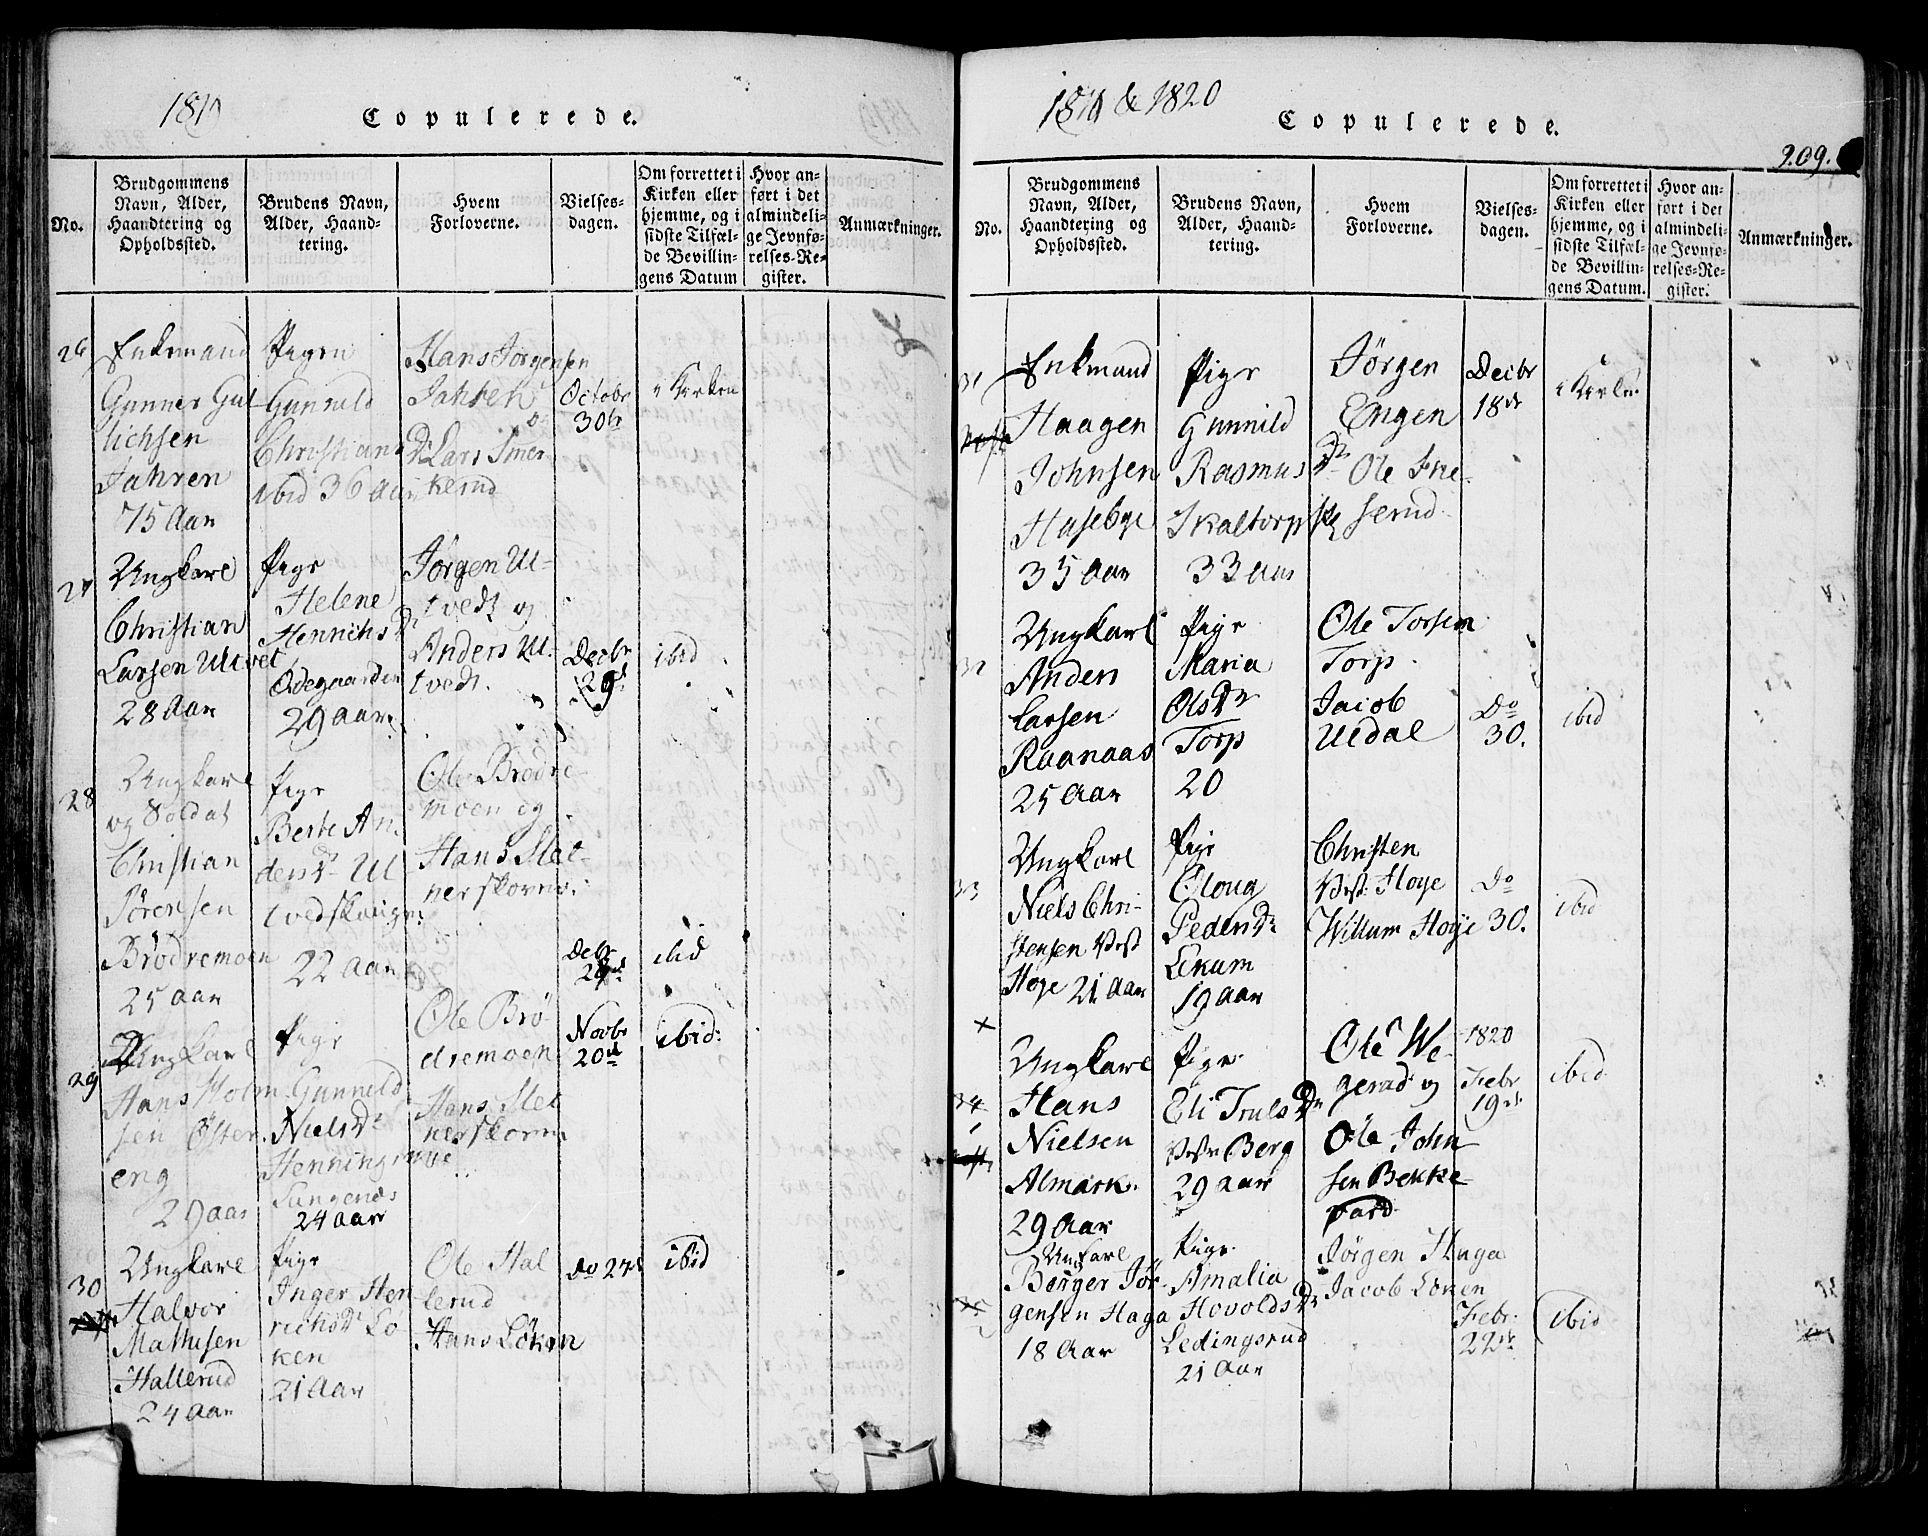 1819
Copulerede.
No.
Brudgommens
Navn, Alder,
Haandtering og
Opholdssted.
Brudens Navn,
Alder, Haand-
tering.
Hvem
Forloverne.
Vielses-
dagen.
Om forrettet i
Kirken eller
hjemme, og i
sidste Tilfæl-
de Bevillin-
gens Datum
Hvor an-
ført i det
almindeli-
ge Jevnfø-
relses-Re-
gister.
Anmærkninger.
26
Enkemand
Gunner Gul
lichsen
Jahren
75 Aar
Pigen
Gunnild
Christians Dr
ibid 36 Aar
Hans Jørgensen
Jahren
og
Lars Smer
kerud
Octobr
30te
i Kirken
27
Ungkarl
Christian
Larsen Ultvet
28 Aar
Pige
Helene
Henrichs Dr
Ödegaarden
29 aar
Jørgen Ul-
tvedt og
Anders Ul-
tvedt.
Decbr
29d
ibid
28
Ungkarl
og Soldat
Christian
Sörensen
Brödremoen
25 aar
Pige
Berte An-
ders Dr Ul-
tvedskougen
22 aar
Ole Brödre-
moen og
Hans Slet-
nerskoven
Decbr
29d
ibid
29
Ungkarl
Hans Holm-
sen Öster-
eng
29 aar
Pige
Gunnild
Niels Dr
Henningmoe
Sangenæs
24 aar
Ole Brö-
dremoen
Hans Slet
nerskoven
Novbr
20d
ibid:
30
Ungkarl
Halvor
Mathisen
Hallerud
24 Aar
Pige
Inger Hen
richs Dr Lö
ken
21 Aar
Ole Hal
lerud
Hans Löken
Do 27d
ibid
1819 & 1820
Copulerede.
209.
No.
Brudgommens
Navn, Alder,
Haandtering og
Opholdssted.
Brudens Navn,
Alder, Haand-
tering.
Hvem
Forloverne.
Vielses-
dagen.
Om forrettet i
Kirken eller
hjemme, og i
sidste Tilfæl-
de Bevillin-
gens Datum.
Hvor an-
ført i det
almindeli-
ge Jevnfø-
relses-Re-
gister.
Anmærkninger.
31
Enkmand
Haagen
Johnsen
Hasebye
35 Aar
Pige
Gunnild
Rasmus Dr
Skaltorp
33 aar
Jörgen
Engen
Ole Fre-
serud
Decbr
18de
i Kirken
32
Ungkarl
Anders
Larsen
Raanaas
25 Aar
Pige
Maria
Ols Dr
Torp
20
Ole Torsen
Torp
Jacob
Uldal
Do
30.
ibid
33
Ungkarl
Niels Chri-
stensen Vest
Høye 21 Aar
Pige
Oloug
Peders Dr
Lekum
19 Aar
Christen
Vest: Høye
Willum Høye
Do
30.
ibid
34
Ungkarl
Hans
Nielsen
Almark.
29 Aar
Pige
Eli Truls Dr
Vestre Berg
29 aar
Ole We-
gerud og
Ole John
sen Bekke-
1820
Febr
19de
ibid
35
Ungkarl
Berger Jör-
gensen Haga
18 Aar
Pige
Amalia
Hovolds Dr
Ledingsrud
21 Aar
Jörgen Haga
Jacob Löken
Febr.
22de
ibid